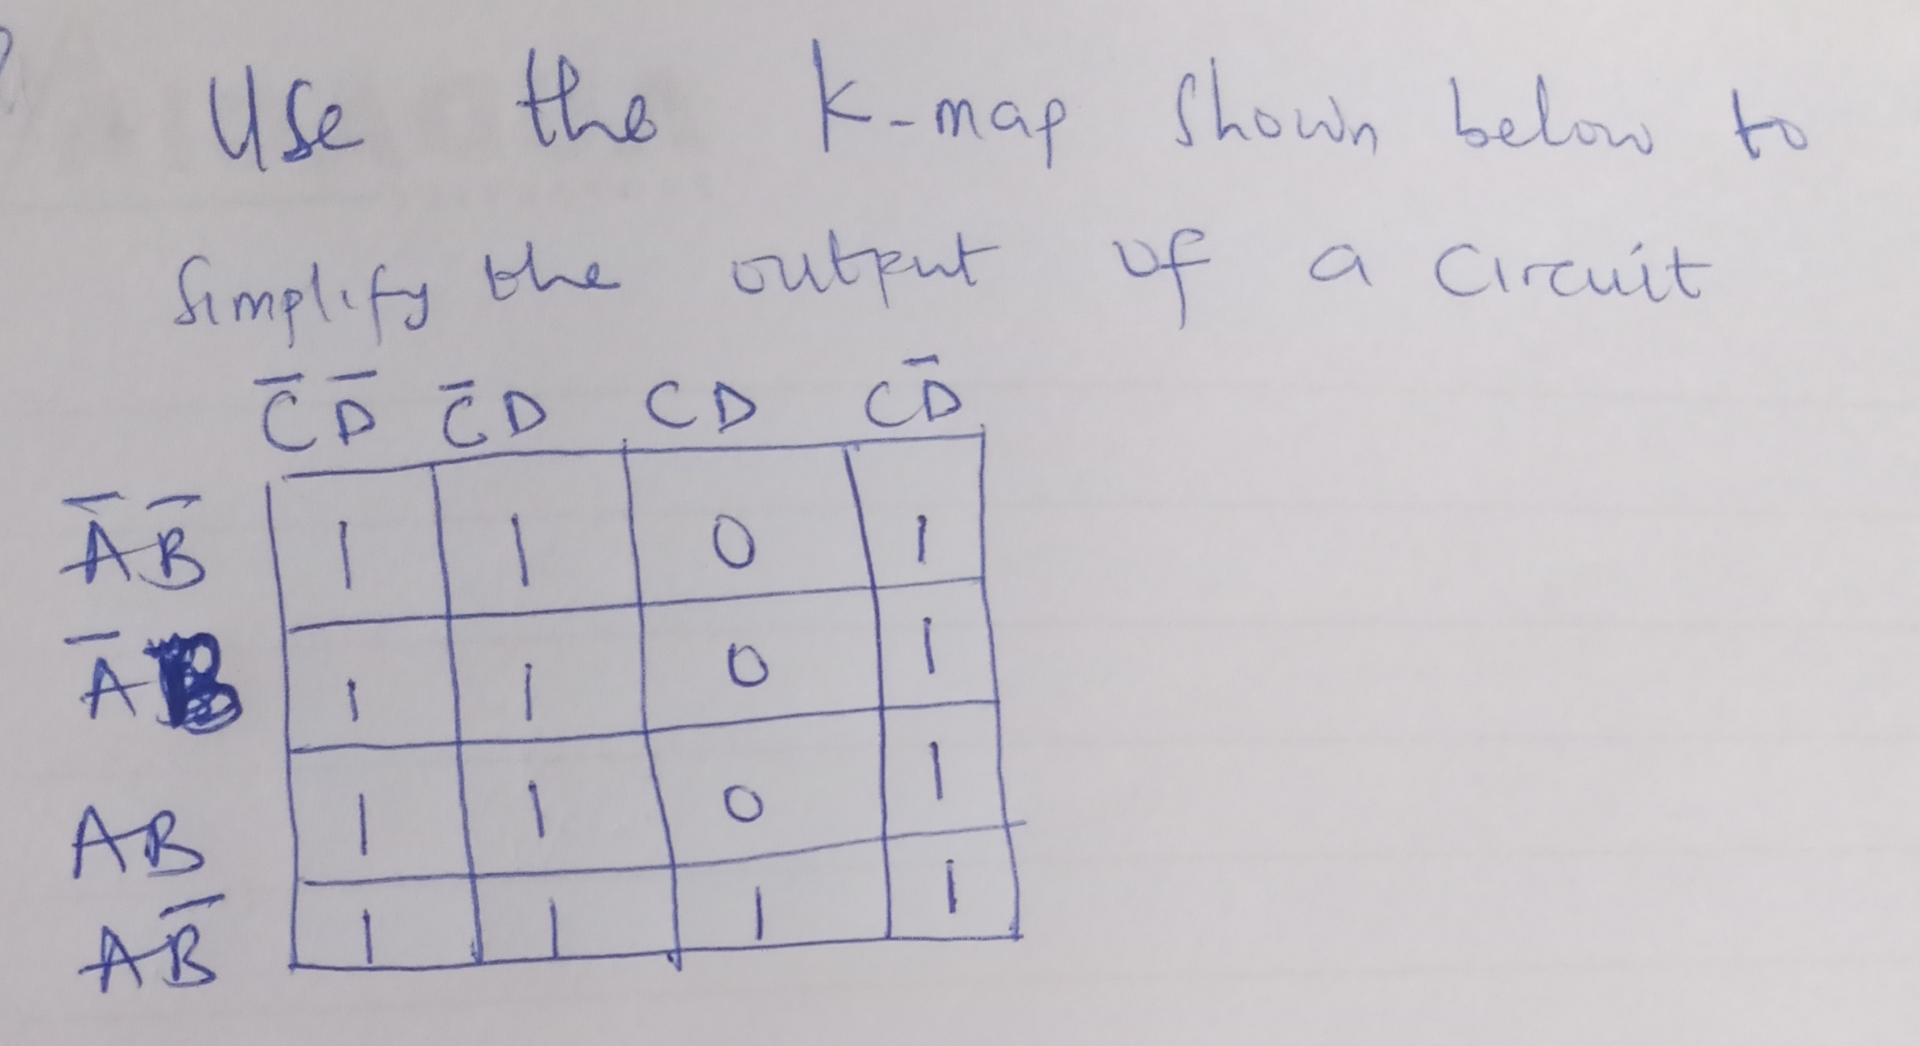 Use the K-map shown below to
Simplify the output of a Circuit
C̄ D̄ C̄ D C D C D̄
Ā B̄ 1 1 0 1
Ā B 1 1 0 1
A B 1 1 0 1
A B̄ 1 1 1 1